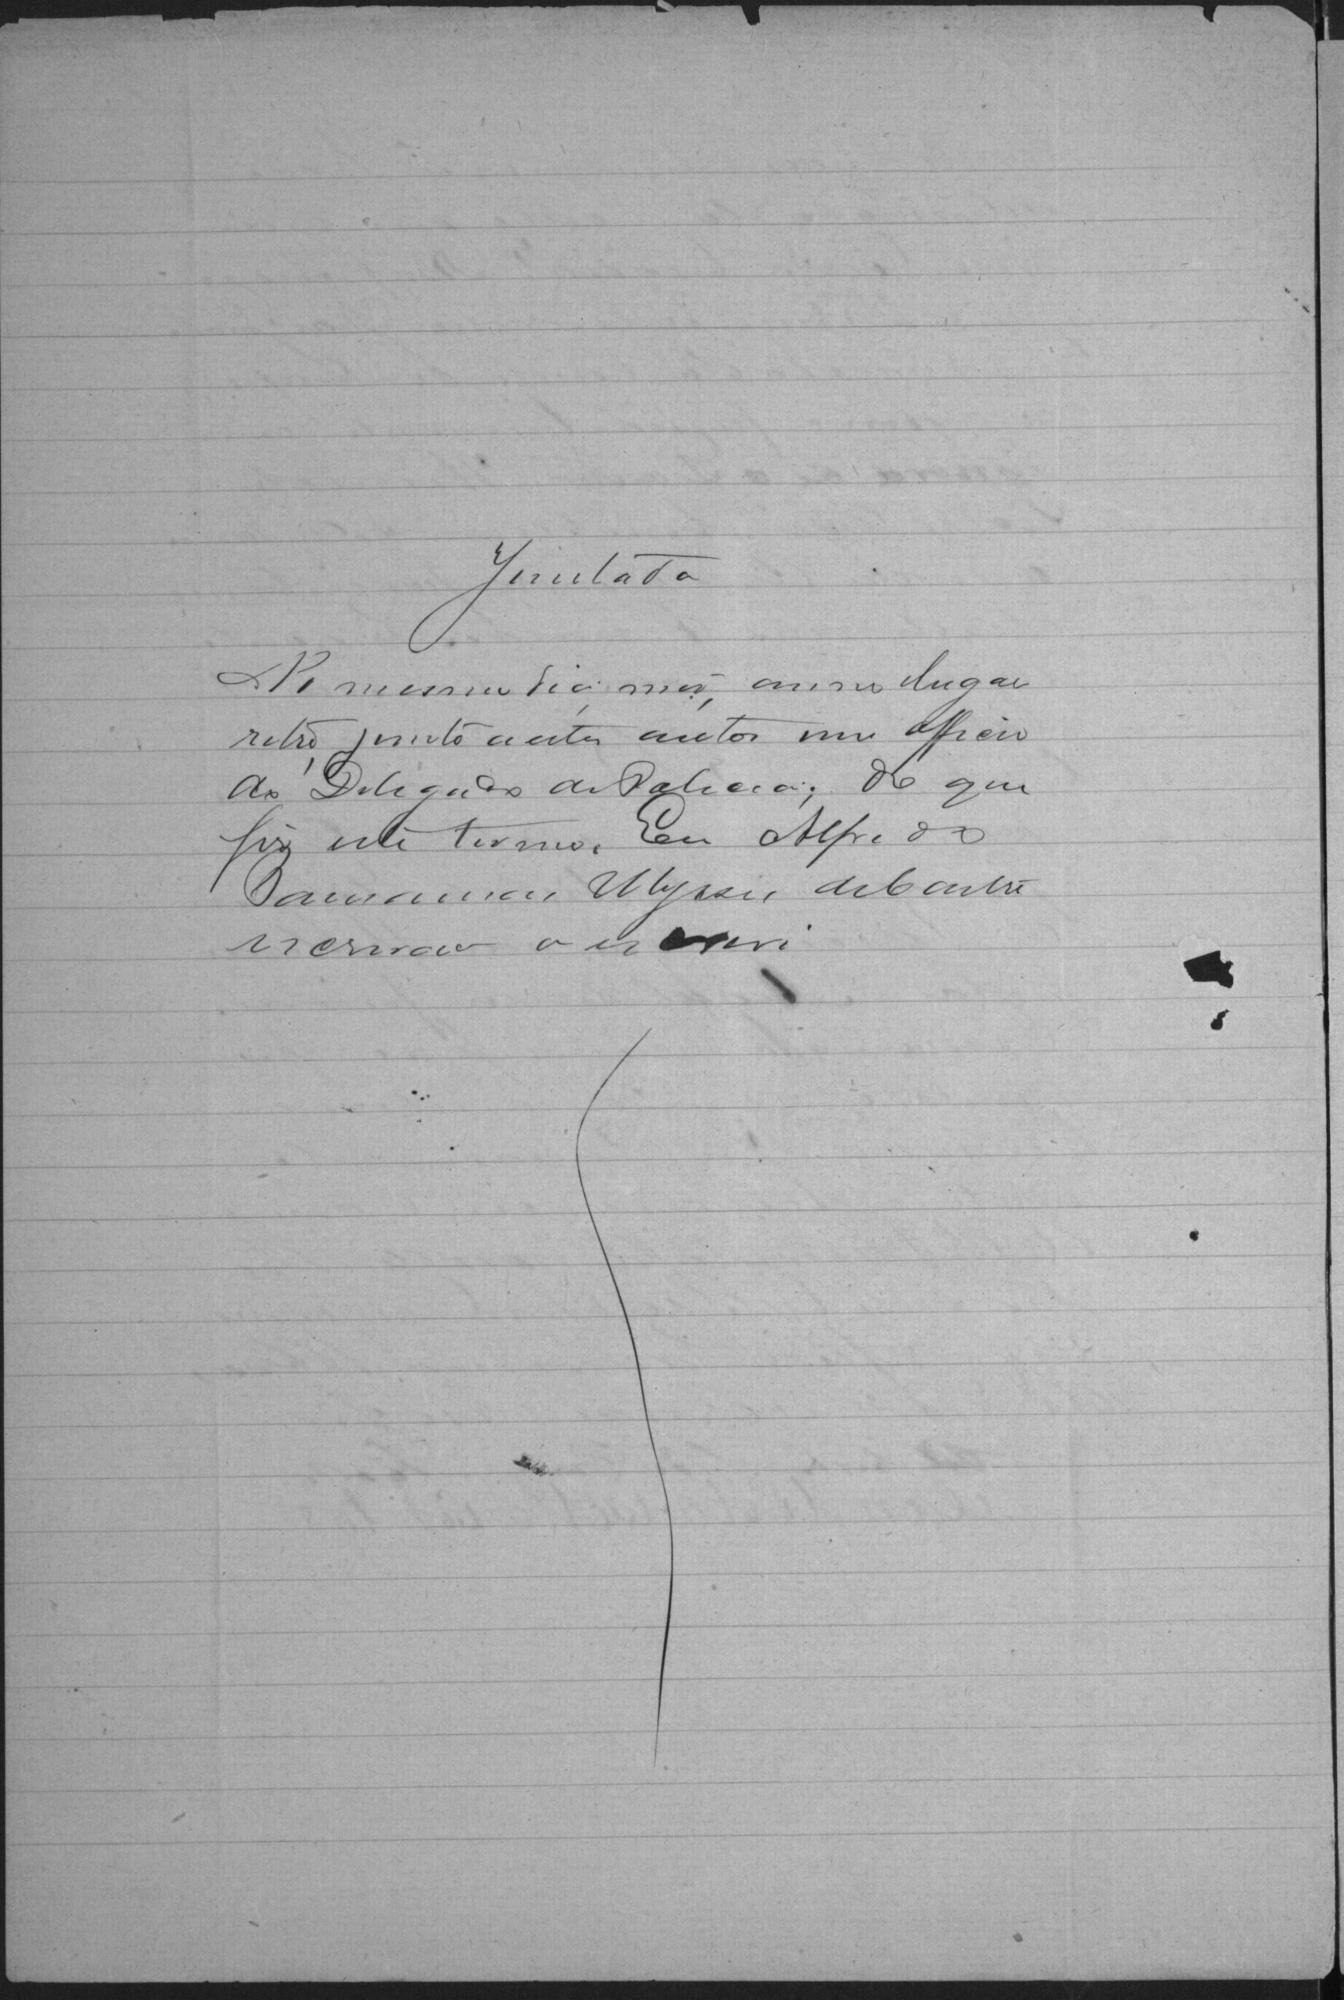 Juntada
No mesmo dia, mez, anno e lugar
retro, junto a estes autos um officio
do Delegado de Policia; do que
fiz este termo. Eu Alfredo
Ulysses de Castro
escrivão o escrevi